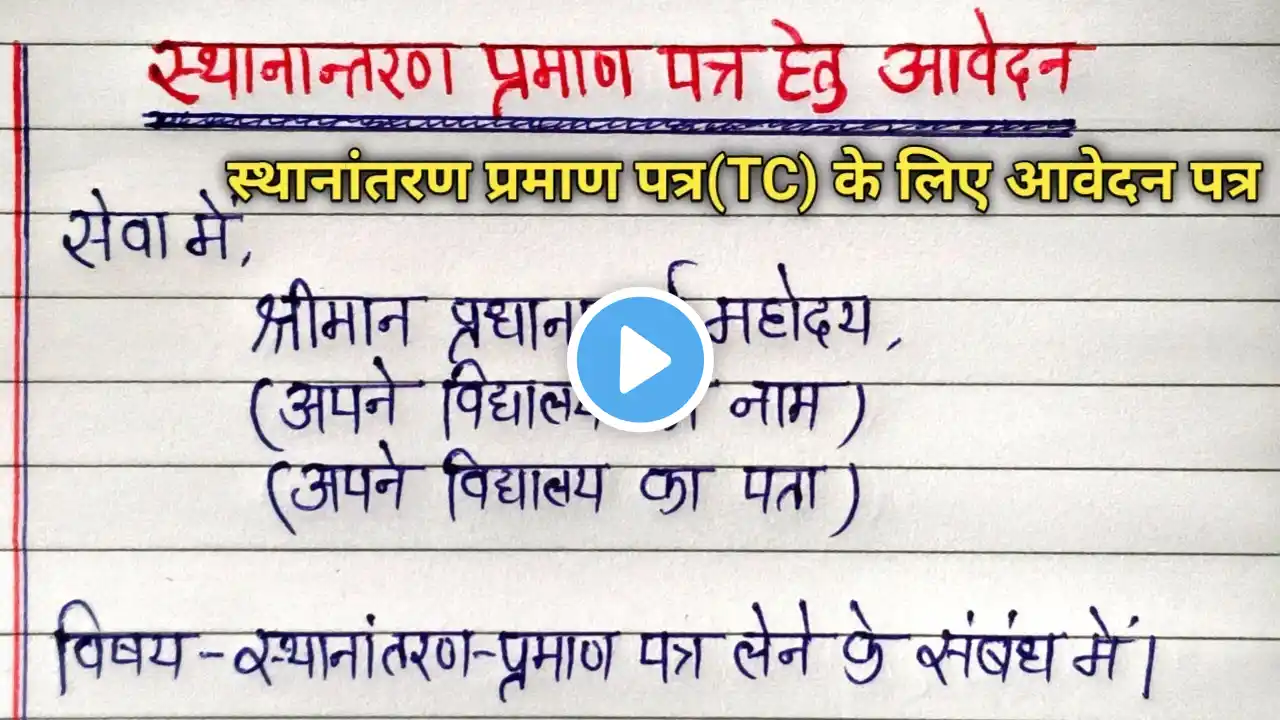 स्थानान्तरण प्रमाण पत्र हेतु आवेदन
स्थानांतरण प्रमाण पत्र(TC) के लिए आवेदन पत्र
सेवा में,
श्रीमान महोदय,
(अपने विद्यालय नाम)
(अपने विद्यालय का पता)
विषय-स्थानांतरण-प्रमाण पत्र लेने के संबंध में।